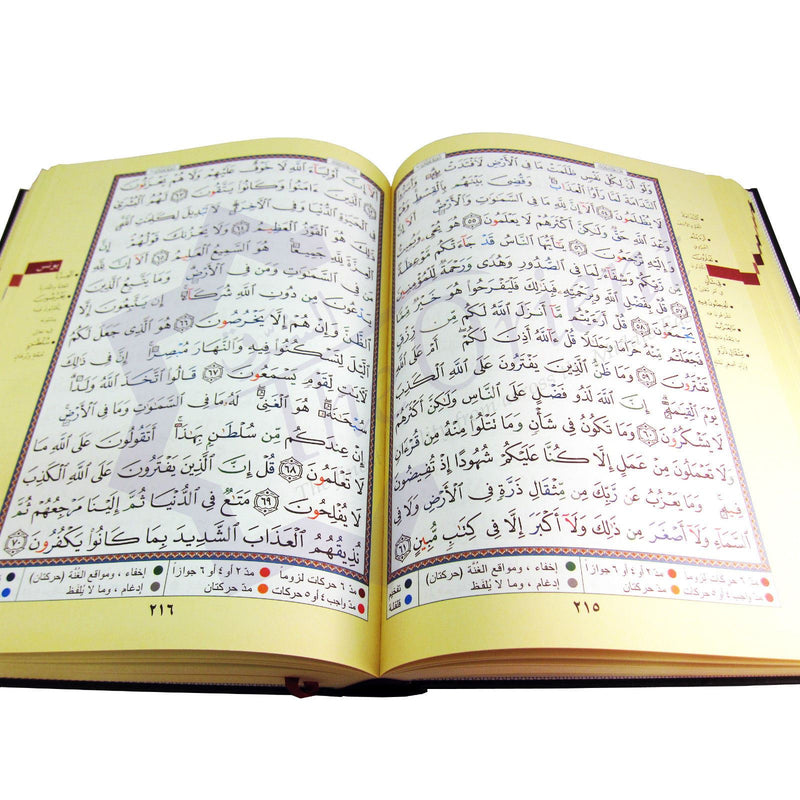 وَلَوْ أَنَّ لِكُلِّ نَفْسٍ ظَلَمَتْ مَا فِي الْأَرْضِ لَافْتَدَتْ
بِهِ وَأَسَرُّوا النَّدَامَةَ لَمَّا رَأَوُا الْعَذَابَ وَقُضِيَ بَيْنَهُم بِالْقِسْطِ وَهُمْ
لَا يُظْلَمُونَ ٥٤ أَلَا إِنَّ لِلَّهِ مَا فِي السَّمَاوَاتِ وَالْأَرْضِ أَلَا إِنَّ
وَعْدَ اللَّهِ حَقٌّ وَلَٰكِنَّ أَكْثَرَهُمْ لَا يَعْلَمُونَ ٥٥ هُوَ يُحْيِي وَيُمِيتُ
وَإِلَيْهِ تُرْجَعُونَ ٥٦ يَا أَيُّهَا النَّاسُ قَدْ جَاءَتْكُم مَّوْعِظَةٌ
مِّن رَّبِّكُمْ وَشِفَاءٌ لِّمَا فِي الصُّدُورِ وَهُدًى وَرَحْمَةٌ لِّلْمُؤْمِنِينَ
٥٧ قُلْ بِفَضْلِ اللَّهِ وَبِرَحْمَتِهِ فَبِذَٰلِكَ فَلْيَفْرَحُوا هُوَ خَيْرٌ مِّمَّا
يَجْمَعُونَ ٥٨ قُلْ أَرَأَيْتُم مَّا أَنزَلَ اللَّهُ لَكُم مِّن رِّزْقٍ
فَجَعَلْتُم مِّنْهُ حَرَامًا وَحَلَالًا قُلْ آللَّهُ أَذِنَ لَكُمْ أَمْ عَلَى اللَّهِ
تَفْتَرُونَ ٥٩ وَمَا ظَنُّ الَّذِينَ يَفْتَرُونَ عَلَى اللَّهِ الْكَذِبَ
يَوْمَ الْقِيَامَةِ إِنَّ اللَّهَ لَذُو فَضْلٍ عَلَى النَّاسِ وَلَٰكِنَّ أَكْثَرَهُمْ
لَا يَشْكُرُونَ ٦٠ وَمَا تَكُونُ فِي شَأْنٍ وَمَا تَتْلُوا مِنْهُ مِن قُرْآنٍ
وَلَا تَعْمَلُونَ مِنْ عَمَلٍ إِلَّا كُنَّا عَلَيْكُمْ شُهُودًا إِذْ تُفِيضُونَ
فِيهِ وَمَا يَعْزُبُ عَن رَّبِّكَ مِن مِّثْقَالِ ذَرَّةٍ فِي الْأَرْضِ وَلَا فِي
السَّمَاءِ وَلَا أَصْغَرَ مِن ذَٰلِكَ وَلَا أَكْبَرَ إِلَّا فِي كِتَابٍ مُّبِينٍ ٦١
مدّ ٦ حركات لزوماً مدّ ٢ أو ٤ أو ٦ جوازاً إخفاء ، ومواقع الغُنَّة (حركتان) تفخيم
مدّ واجب ٤ أو ٥ حركات مدّ حركتان إدغام ، وما لا يُلفَظ قلقلة
٢١٥
يونس
أَلَا إِنَّ أَوْلِيَاءَ اللَّهِ لَا خَوْفٌ عَلَيْهِمْ وَلَا هُمْ يَحْزَنُونَ
٦٢ الَّذِينَ آمَنُوا وَكَانُوا يَتَّقُونَ ٦٣ لَهُمُ الْبُشْرَىٰ
فِي الْحَيَاةِ الدُّنْيَا وَفِي الْآخِرَةِ لَا تَبْدِيلَ لِكَلِمَاتِ اللَّهِ
ذَٰلِكَ هُوَ الْفَوْزُ الْعَظِيمُ ٦٤ وَلَا يَحْزُنكَ قَوْلُهُمْ إِنَّ
الْعِزَّةَ لِلَّهِ جَمِيعًا هُوَ السَّمِيعُ الْعَلِيمُ ٦٥ أَلَا إِنَّ لِلَّهِ
مَن فِي السَّمَاوَاتِ وَمَن فِي الْأَرْضِ وَمَا يَتَّبِعُ الَّذِينَ
يَدْعُونَ مِن دُونِ اللَّهِ شُرَكَاءَ إِن يَتَّبِعُونَ إِلَّا
الظَّنَّ وَإِنْ هُمْ إِلَّا يَخْرُصُونَ ٦٦ هُوَ الَّذِي جَعَلَ لَكُمُ
اللَّيْلَ لِتَسْكُنُوا فِيهِ وَالنَّهَارَ مُبْصِرًا إِنَّ فِي ذَٰلِكَ
لَآيَاتٍ لِّقَوْمٍ يَسْمَعُونَ ٦٧ قَالُوا اتَّخَذَ اللَّهُ وَلَدًا
سُبْحَانَهُ هُوَ الْغَنِيُّ لَهُ مَا فِي السَّمَاوَاتِ وَمَا فِي الْأَرْضِ
إِنْ عِندَكُم مِّن سُلْطَانٍ بِهَٰذَا أَتَقُولُونَ عَلَى اللَّهِ مَا
لَا تَعْلَمُونَ ٦٨ قُلْ إِنَّ الَّذِينَ يَفْتَرُونَ عَلَى اللَّهِ الْكَذِبَ
لَا يُفْلِحُونَ ٦٩ مَتَاعٌ فِي الدُّنْيَا ثُمَّ إِلَيْنَا مَرْجِعُهُمْ ثُمَّ
نُذِيقُهُمُ الْعَذَابَ الشَّدِيدَ بِمَا كَانُوا يَكْفُرُونَ ٧٠
مدّ ٦ حركات لزوماً مدّ ٢ أو ٤ أو ٦ جوازاً إخفاء ، ومواقع الغُنَّة (حركتان)
مدّ واجب ٤ أو ٥ حركات مدّ حركتان إدغام ، وما لا يُلفَظ
٢١٦